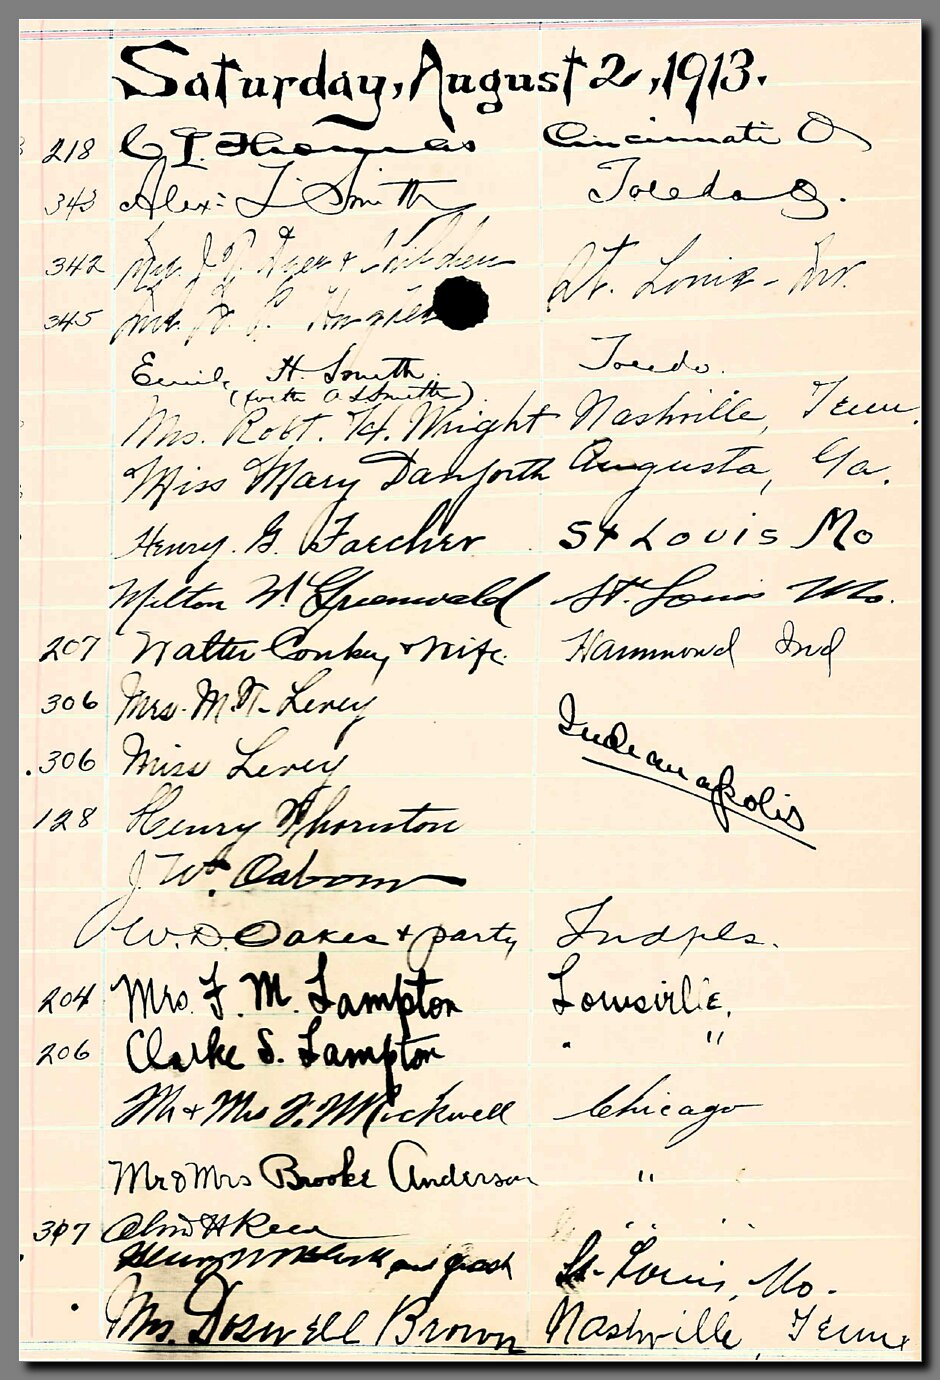 Saturday, August 2, 1913.
218 C I. Thomas Cincinnati O
343 Alex: L Smith Toledo O.
342 Mrs. J. Dyer & Children St. Louis - Mo.
345 H. P.
Emily H. Smith. Toledo.
(with A L Smith)
Mrs. Robt. H. Wright Nashville, Tenn.
Miss Mary Danforth Augusta, Ga.
Henry. G. Faecher St Louis Mo
Milton W. Greenwald St. Louis Mo.
207 Walter Conkey & Wife. Hammond Ind
306 Mrs. M. T. Levey
Indianapolis
306 Miss Levey
128 Henry Thornton
J Wm. Osborn
W. D. Oakes & party Indpls.
204 Mrs. F. M. Lampton Louisville,
206 Clarke S. Lampton " "
Mr & Mrs F. M. Mickwell Chicago
Mr & Mrs Brooke Anderson "
307
Henry and St. Louis, Mo.
Mrs. Doswell Brown Nashville, Tenn